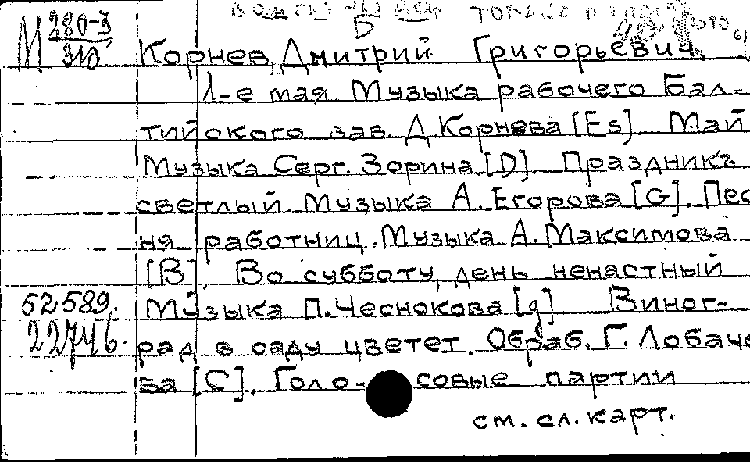 М 280-3
310
Корнев, Дмитрий Григорьевич.
1-е мая. Музыка рабочего Бал-
тийского зав. Д. Корнева [Es]. Май
Музыка Серг. Зорина [D]. Праздникъ
светлый. Музыка А. Егорова [G]. Пес
ня работниц. Музыка А. Максимова
[B]. Во субботу, день ненастный
Музыка П. Чеснокова [g]. Виног-
рад в саду цветет. Обраб. Г. Лобаче
ва [C]. Голо- совые партии
см. сл. карт.
52589.
22746.